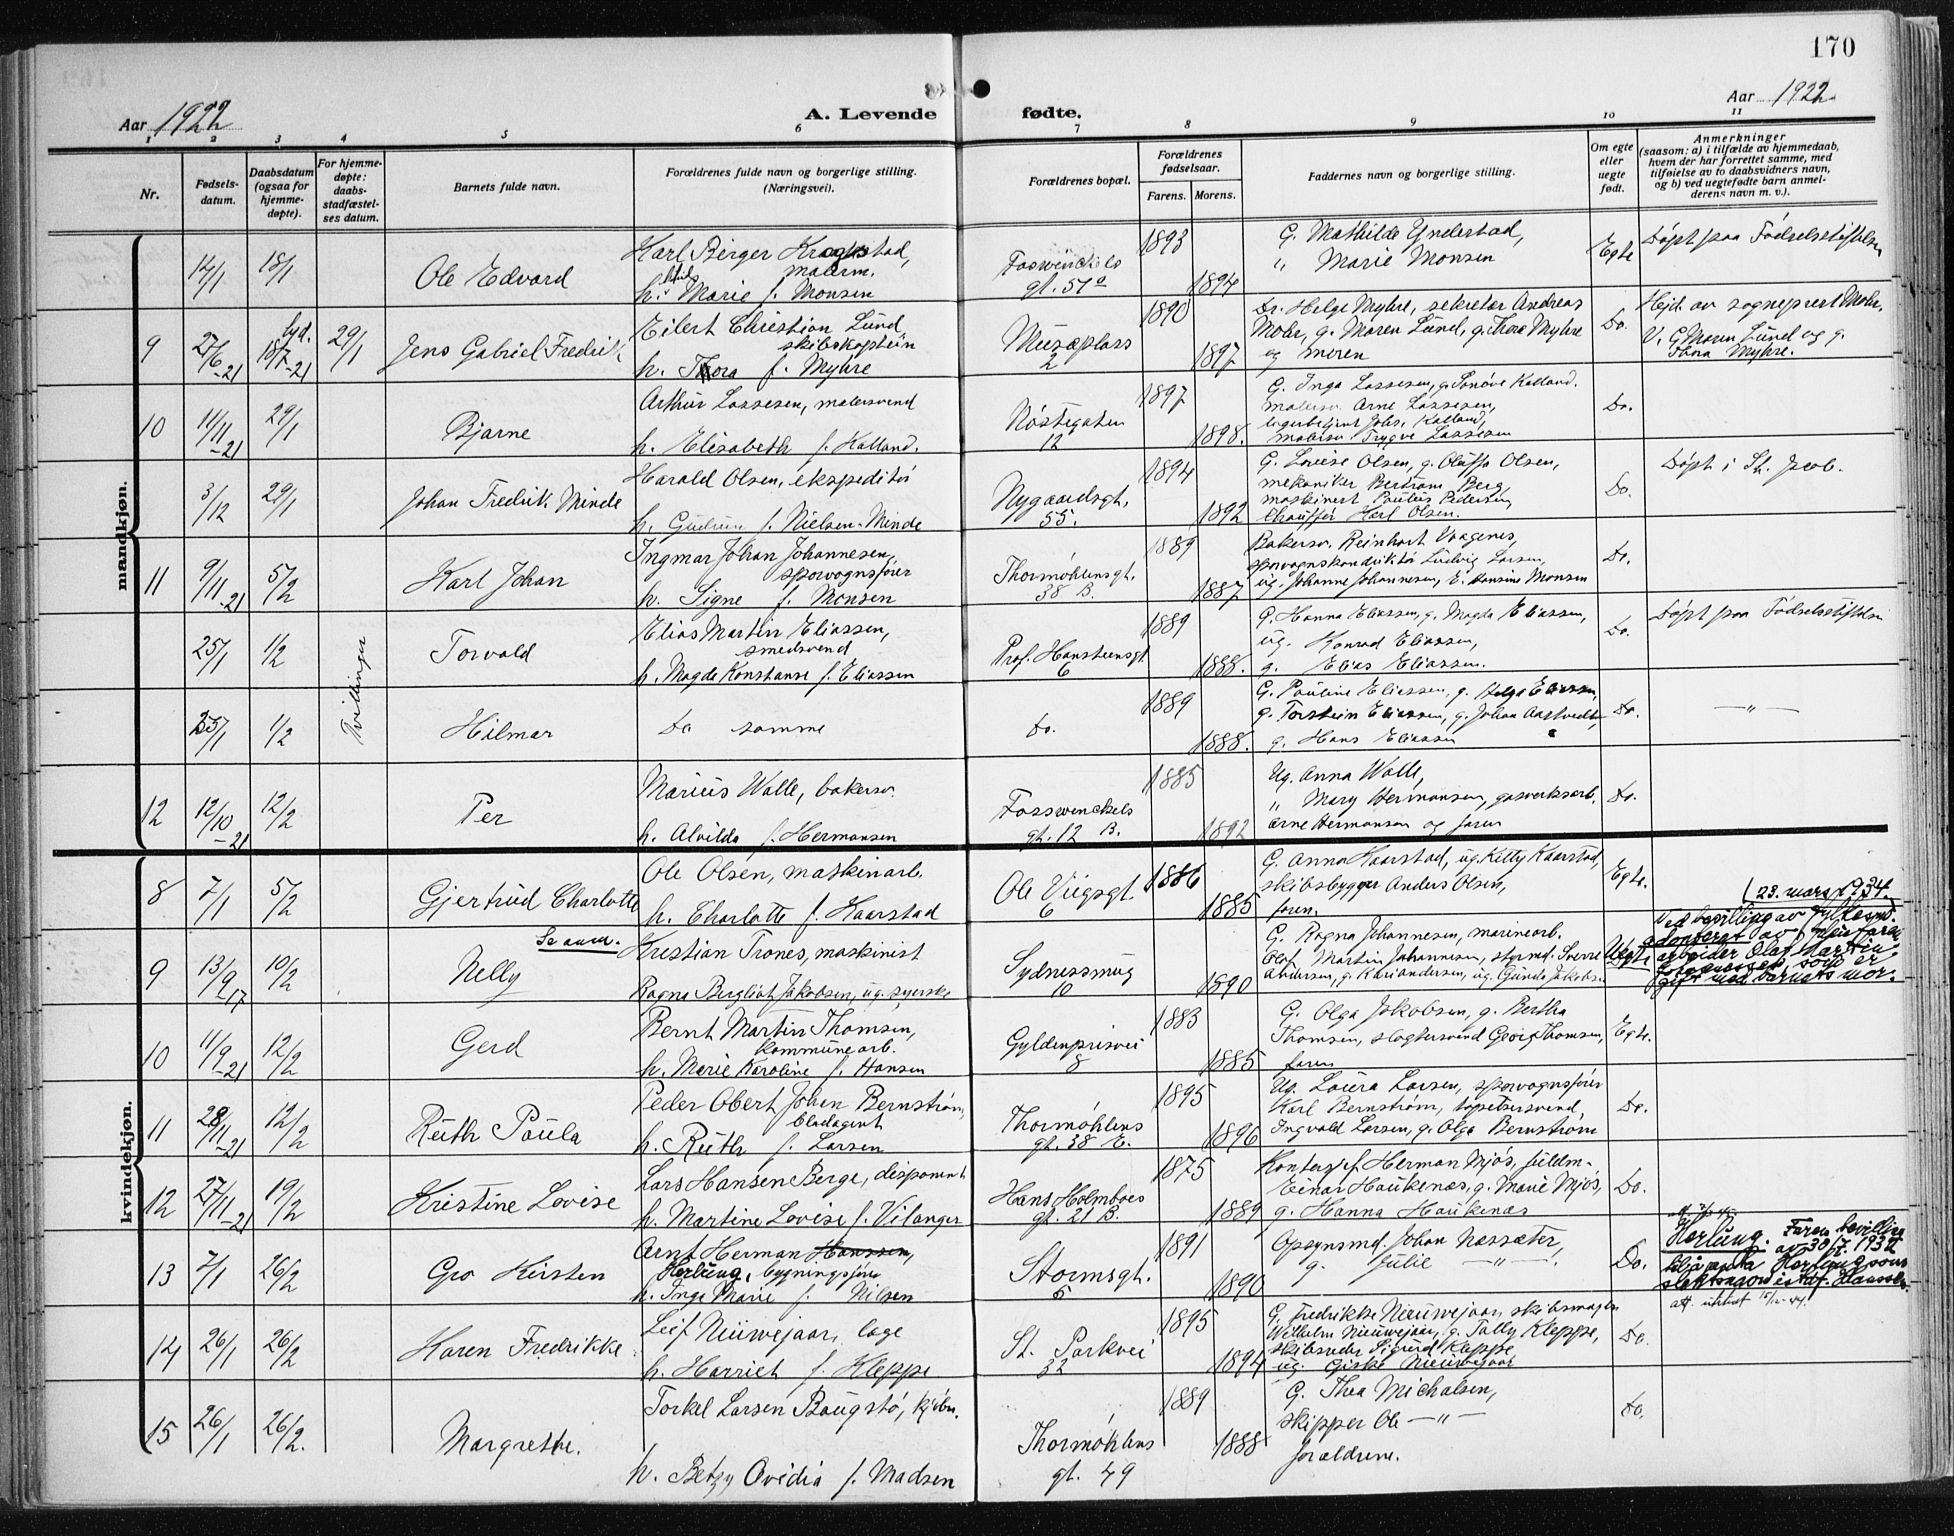 170
Aar 1922
A. Levende
fødte.
Aar 1922
1 2 3 4 5 6 7 8 9 10 11
Nr.
Fødsels-
datum.
Daabsdatum
(ogsaa for
hjemme-
døpte).
For hjemme-
døpte:
daabs-
stadfæstel-
ses datum.
Barnets fulde navn.
Forældrenes fulde navn og borgerlige stilling.
(Næringsvei).
Forældrenes bopæl.
Forældrenes
fødselsaar.
Farens. Morens.
Faddernes navn og borgerlige stilling.
Om egte
eller
uegte
født.
Anmerkninger
(saasom: a) i tilfælde av hjemmedaab,
hvem der har forrettet samme, med
tilføielse av to daabsvidners navn,
og b) ved uegtefødte barn anmel-
derens navn m. v.).
mandkjøn.
14/1 18/1 Ole Edvard
Karl Birger Krogstad,
malerm.
h. Marie f. Monsen
Fosswinckels
gt. 57a
1893 1894
G. Mathilde Yndestad,
" Marie Monsen
Egte
Døpt paa Fødselsstiftelsen
9 27/6-21 18/7-21 29/1 Jens Gabriel Fredrik
Eilert Christian Lund,
skibskaptein
h. Thora f. Myhre
Museplass
2
1890 1897
Dr. Helge Myhre, sekretær Andreas
Mohr, g. Maren Lund, g. Thora Myhre
og moren
Do.
Hjd. av sogneprest Mohr.
V. G Maren Lund og g.
Thora Myhre.
10 11/11-21 29/1 Bjarne
Arthur Lassesen, malersvend
h. Elisabeth f. Kalland.
Nøstegaten
12
1897 1898.
G. Inga Lassesen, g. Tonøve Kalland.
malersv. Arne Lassesen,
lagerbetjent Johs. Kalland,
malersv. Trygve Lassesen
Do.
3/12 29/1 Johan Fredrik Minde
Harald Olsen, ekspeditør
h. Gudrun f. Nielsen-Minde
Nygaardsgt.
55.
1894 1892
G. Lovise Olsen, g. Oluffa Olsen,
mekaniker Bertram Berg,
maskinist Paulus Pedersen,
Chauffør Karl Olsen.
Do.
Døpt i St. Jacob.
11 9/11-21 5/2 Karl Johan
Ingmar Johan Johannesen,
sporvognsfører
h. Signe f. Monsen
Thormøhlensgt.
38 B.
1889 1887
Bakersv. Reinhart Vaagenes,
sporvognskonduktør Ludvig Larsen,
ug. Johanne Johannesen, E. Hansine Monsen
Do.
25/1 1/2 Torvald
Elias Martin Eliassen,
smedsvend
h. Magda Konstanse f. Eliassen
Prof. Hansteensgt.
6
1889 1888.
G. Hanna Eliassen, g. Magda Eliassen,
ug. Konrad Eliassen,
g. Elias Eliassen.
Do.
Døpt paa Fødselsstiftelsen
Tvillinger
25/1 1/2 Hilmar
Do samme
Do.
1889 1888.
G. Pauline Eliassen, g. Helga Eliassen,
g. Torstein Eliassen, g. Johan Aartvedt
g. Hans Eliassen
Do.
— " —
12 12/10-21 12/2 Per
Marius Walle, bakersv.
h. Alvilda f. Hermansen
Fosswinckels
gt. 12 B.
1885 1892
Ug. Anna Walle,
" Mary Hermansen, gasverksarb.
Arne Hermansen og faren
Do.
kvindekjøn.
8 7/1 5/2 Gjertrud Charlotte
Ole Olsen, maskinarb.
h. Charlotte f. Kaarstad
Ole Viigsgt.
6
1886 1885
G. Anna Kaarstad, ug. Kitty Kaarstad,
skibsbygger Anders Olsen,
faren.
Egte.
9 13/9-17 10/2 Nelly
Se anm.
Kristian Trones, maskinist
Ragna Bergliot Jakobsen, ug. syerske
Sydnessmug
10
1890
G. Ragna Johannesen, marinearb.
Olaf Martin Johannesen, styrmd. Sverre
Andersen, g. Kari Andersen, ug. Gunda Jakobsen
Uegte
(23. mars 1934.
Ved bevilling av fylkesmd.
adoptert av
arbeider Olaf Martin
Johannesen som er
gift med barnets mor.
10 11/9-21 12/2 Gerd
Bernt Martin Thomsen,
kommunearb.
h. Marie Karoline f. Hansen
Gyldenprisvei
8
1883 1885
G. Olga Jakobsen, g. Bertha
Thomsen, slagtersvend Georg Thomsen,
faren
Egte.
11 28/11-21 12/2 Ruth Paula
Peder Obert Johan Bernstrøm,
bladagent
h. Ruth f. Larsen
Thormøhlens
gt. 38 E.
1895 1896
Ug. Laura Larsen, sporvognsfører
Karl Bernstrøm, tapetsersvend,
Ingvald Larsen, g. Olga Bernstrøm
Do.
12 27/11-21 19/2 Kristine Lovise
Lars Hansen Berge, disponent
h. Martine Lovise f. Vilanger
Hans Holmboes
gt. 21 B.
1875 1889
Kontorsjef Herman Mjøs, fuldm.
Einar Haukenæs, g. Marie Mjøs,
g. Hanna Haukenæs
Do.
13 7/1 26/2 Gro Kirsten
Arnt Herman Hanssen,
Herlung, bygningsfører
h. Inga Marie f. Nilsen
Stormsgt.
5
1891 1890
Opsynsmd. Johan Næssæter,
g. Julie — " —.
Do.
Herlung. Faren bevilling
av 30/7. 1932
til å anta Herlung som
slektsnavn istdf. Hanssen.
att. utstedt
14 26/1 26/2 Karen Fredrikke
Leif Nieuwejaar, læge
h. Harriet f. Kleppe
St. Parkvei
32
1895 1894
G. Fredrikke Nieuwejaar, skibsmægler
Wilhelm Nieuwejaar, g. Tally Kleppe,
skibsreder Sigurd Kleppe,
ug. Giske Nieuwejaar
Do.
15 26/1 26/2. Margrethe.
Torkel Larsen Baugstø, kjøbm.
h. Betzy Ovidia f. Madsen
Thormøhlens
gt. 49
1889 1888
G. Thea Michalsen,
skipper Ole — " —
forældrene.
Do.